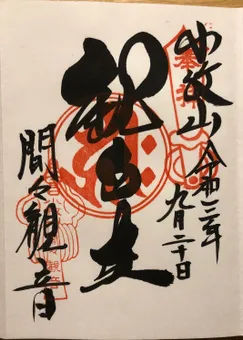 小牧山 令和二年
九月二十日
奉拝
観自在
間々観音